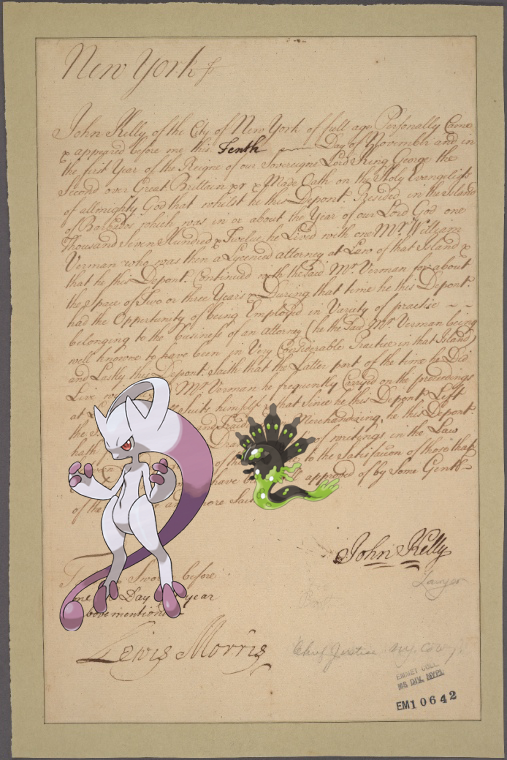 New York ss
John Kelly of the City of New York of full age Personally Came
& appeared before me this Tenth Day of Novemb.r and in
the first Year of the Reigne of our Sovereigne Lord King George the
Second over Great Brittain &c & Made Oath on the Holy Evangelists
of allmighty God that whilst he this Depon.t Resided in the Island
of Barbados which was in or about the Year of our Lord God one
Thousand Seven Hundred & Twelve he Lived with one M.r William
Verman who was then a Lycenced Attorney at Law of that Island &
that he this Depon.t Continued with the said M.r Verman for about
the space of two or three Years & During that time he this Depon.t
had the Opportunity of being Employed in Variety of practice
belonging to the business of an attorney (he the said M.r Verman being
well known to have been in Very Considerable Practice in that Island)
and Lastly this Depon.t saith that the Latter part of the time he Did
Live M.r Verman he frequently Carryed on the proceedings
at himself & that since he this Depon.t Left
the Merchandizing, he this Depon.t
hath of writeings in the Law
of the to the Satisfaction of those that
have be approved of by Some Gentn
of the and more
John Kelly
Lawyer
Sworn before
me Day & year
abovementioned
Lewis Morris
Chief Justice N.Y. Colony
EMMET COLL.
MS DIV. NYPL
EM10642